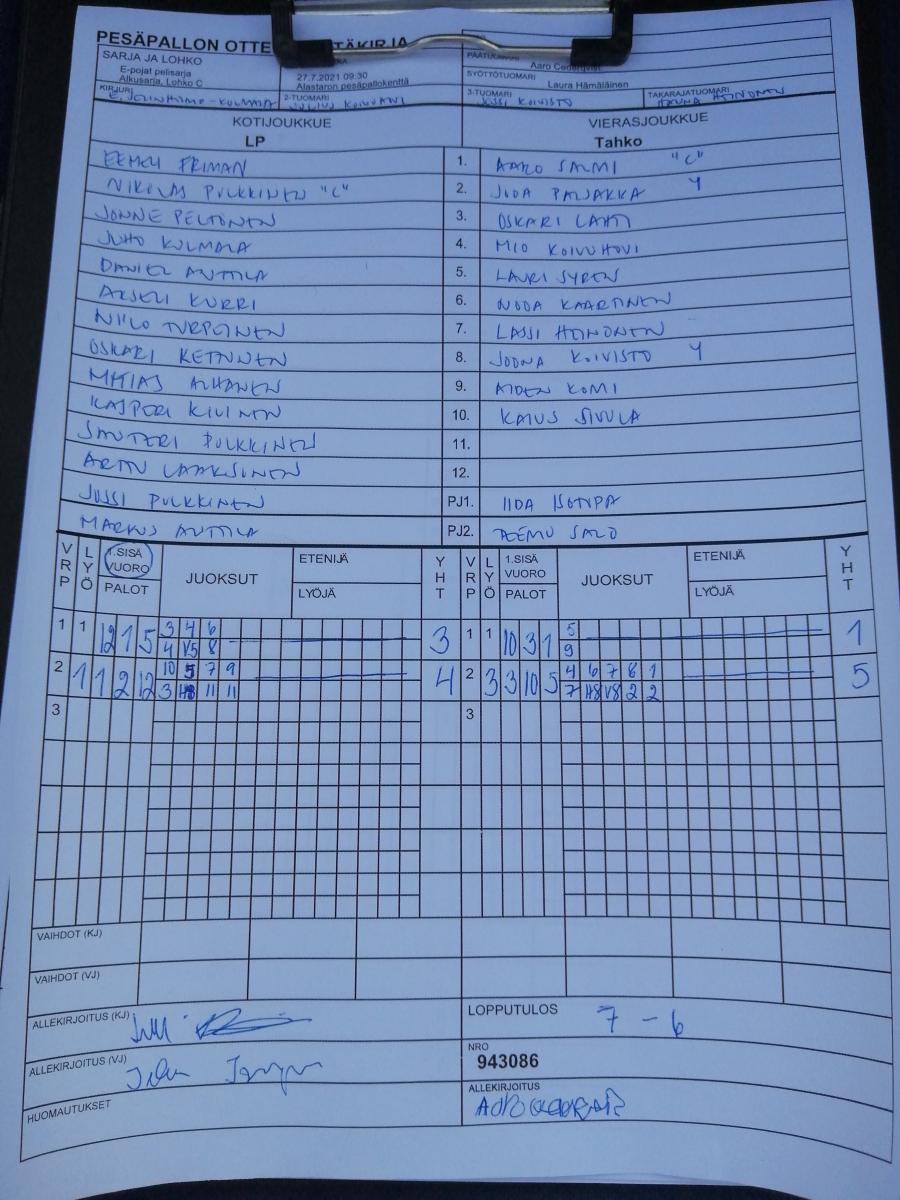 PESÄPALLON OTTE TÄKIRJA
SARJA JA LOHKO
E-pojat pelisarja
Alkusarja, Lohko C
27.7.2021 09:30
Alastaron pesäpallokenttä
PÄÄTUOMARI
Aaro
SYÖTTÖTUOMARI
Laura Hämäläinen
KIRJURI
2-TUOMARI
JULIUS KOIVUNI
3-TUOMARI
JUSSI KOIVISTO
TAKARAJATUOMARI
HEINONEN
KOTIJOUKKUE
LP
VIERASJOUKKUE
Tahko
EEMELI FRIMAN 1. AARO SALMI "C"
NIKLAS PULKKINEN "C" 2. JUDA PAJAKKA Y
JONNE PELTONEN 3. OSKARI LAHTI
JUHO KULMALA 4. MIO KOIVUHOVI
DANIEL ANTTILA 5. LAURI SYREN
AKSELI KURRI 6. NOOA KAARTINEN
NIILO TURPEINEN 7. LASSI HEINONEN
OSKARI KETANEN 8. JOONA KOIVISTO Y
MATIAS ALHANEN 9. AIDEN KOMI
KASPERI KIVINEN 10. KAIUS SIVULA
SANTERI PULKKINEN 11.
ARTTU LAAKSONEN 12.
JUSSI PULKKINEN PJ1. IIDA ISOTUPA
MARKUS ANTTILA PJ2. TEEMU SALO
VRP LYÖ 1.SISÄ VUORO PALOT JUOKSUT ETENIJÄ LYÖJÄ YHT VRP LYÖ 1.SISÄ VUORO PALOT JUOKSUT ETENIJÄ LYÖJÄ YHT
1 1 12 1 5 3 4 6 3 1 1 10 3 1 5 1
4 V5 8 9
2 1 1 2 12 10 5 7 9 4 2 3 3 10 5 4 6 7 8 1 5
3 H8 11 11 7 H8 V8 2 2
3 3
VAIHDOT (KJ)
VAIHDOT (VJ)
ALLEKIRJOITUS (KJ)
LOPPUTULOS 7 - 6
ALLEKIRJOITUS (VJ)
NRO
943086
HUOMAUTUKSET
ALLEKIRJOITUS